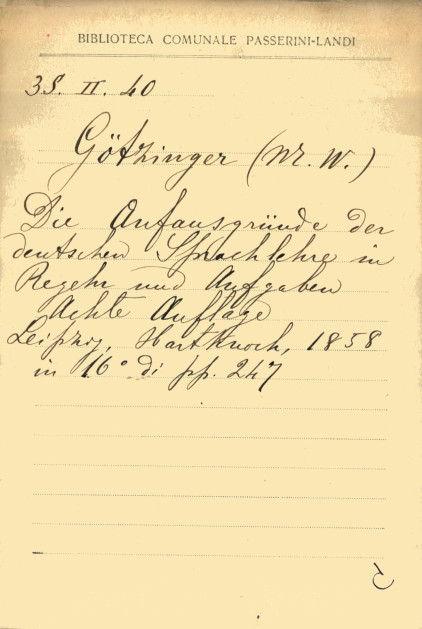 BIBLIOTECA COMUNALE PASSERINI-LANDI
3S. II. 40
Götzinger (M. W.)
Die Anfansgründe der
deutschen Sprachlehre in
Regeln und Aufgaben
Achte Auflage
Leipzig, Hartknoch, 1858
in 16° di pp. 247